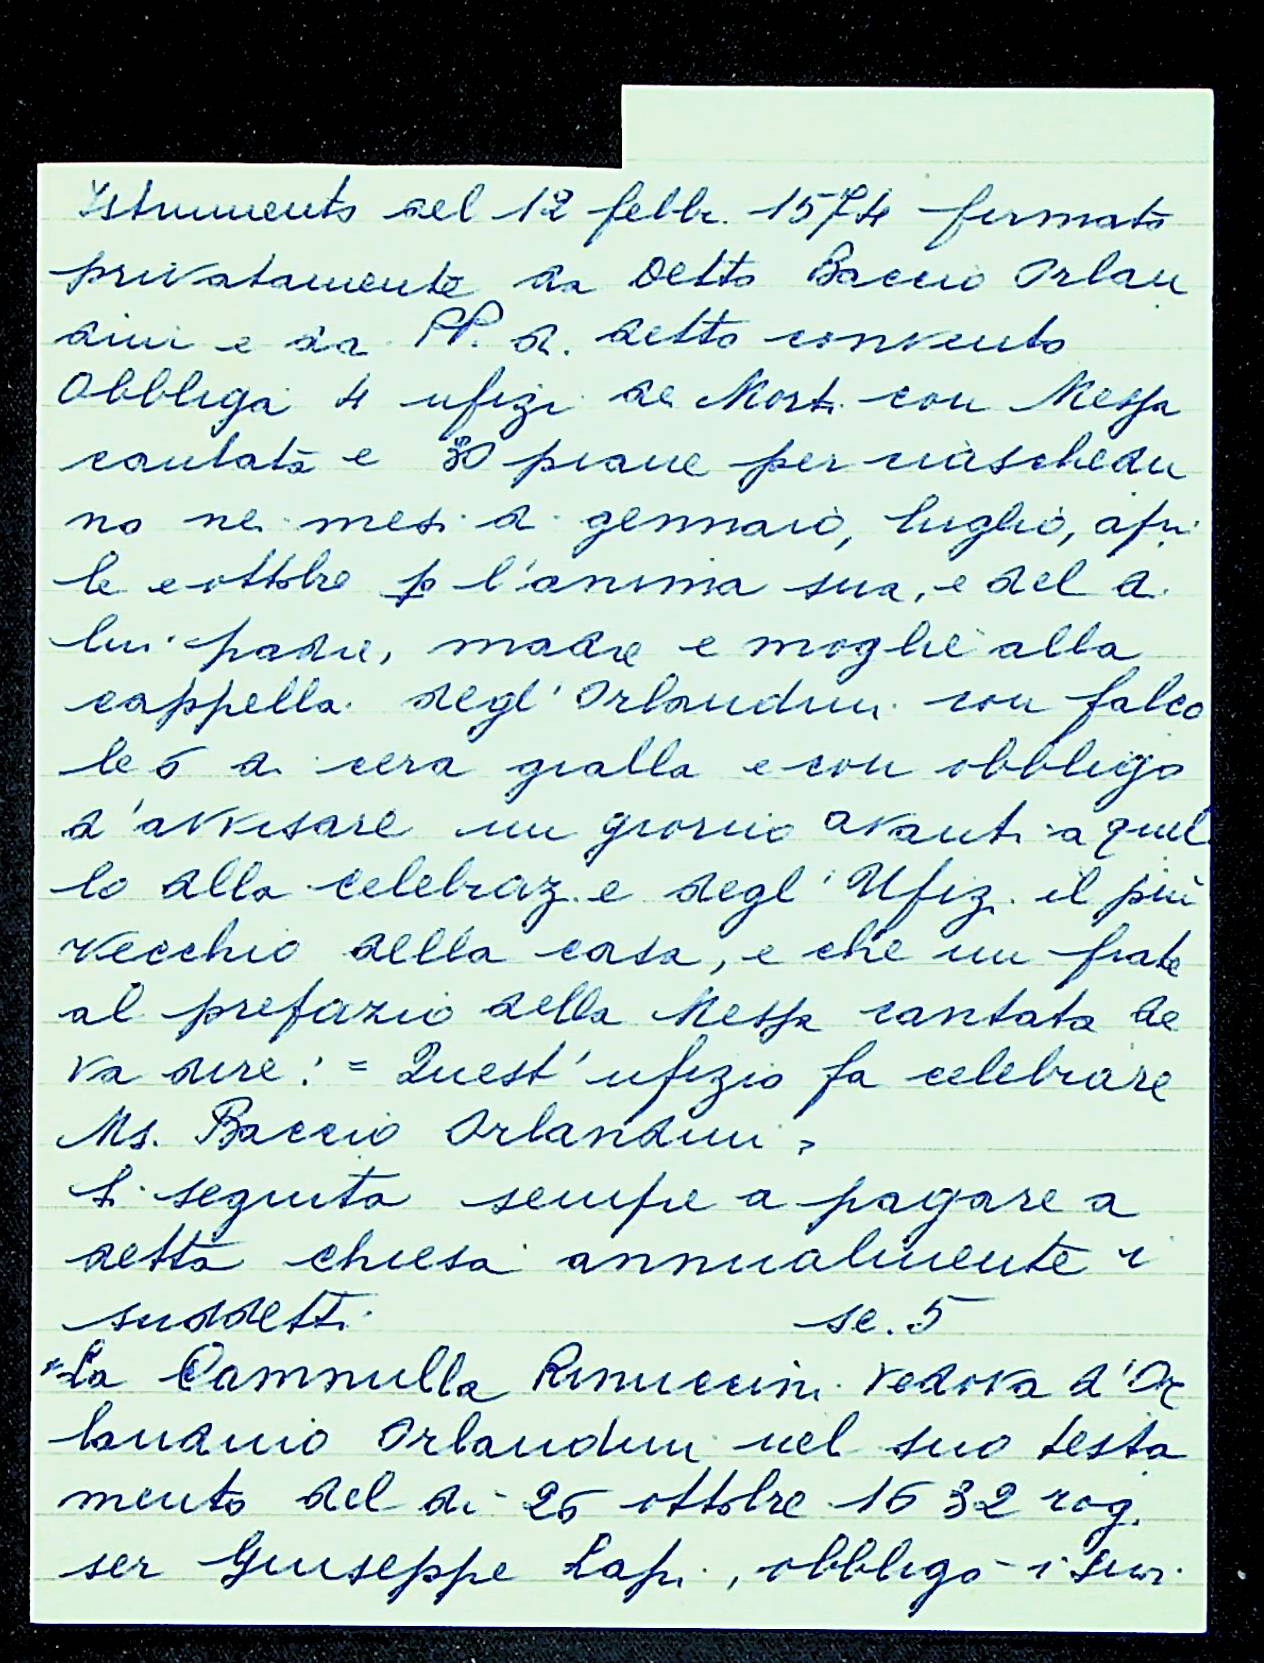 Istrumento del 12 febbr. 1574 firmato
privatamente da Detto Baccio Orlan
dini e da PP. di detto convento
Obbliga 4 ufizi de Morti con Messa
cantata e 30 piane per ciaschedu
no nei mesi di gennaio, luglio, apri
le e ottobre p l'anima sua, e del di
lui padre, madre e moglie alla
cappella degl'Orlandini con falco
le 6 di cera gialla e con obbligo
d'avvisare un giorno avanti a quel
lo alla celebraz.e degl'Ufizi il più
vecchio della casa, e che un frate
al prefazio della Messa cantata de
va dire: = Quest'ufizio fa celebrare
Ms. Baccio Orlandini =
Si seguita sempre a pagare a
detta chiesa annualmente i
suddetti sc. 5
"La Cammilla Rinuccini vedova d'Or
landino Orlandini nel suo testa
mento del dì 26 ottobre 1632 rog.
ser Giuseppe Lapi, obbligò i suoi